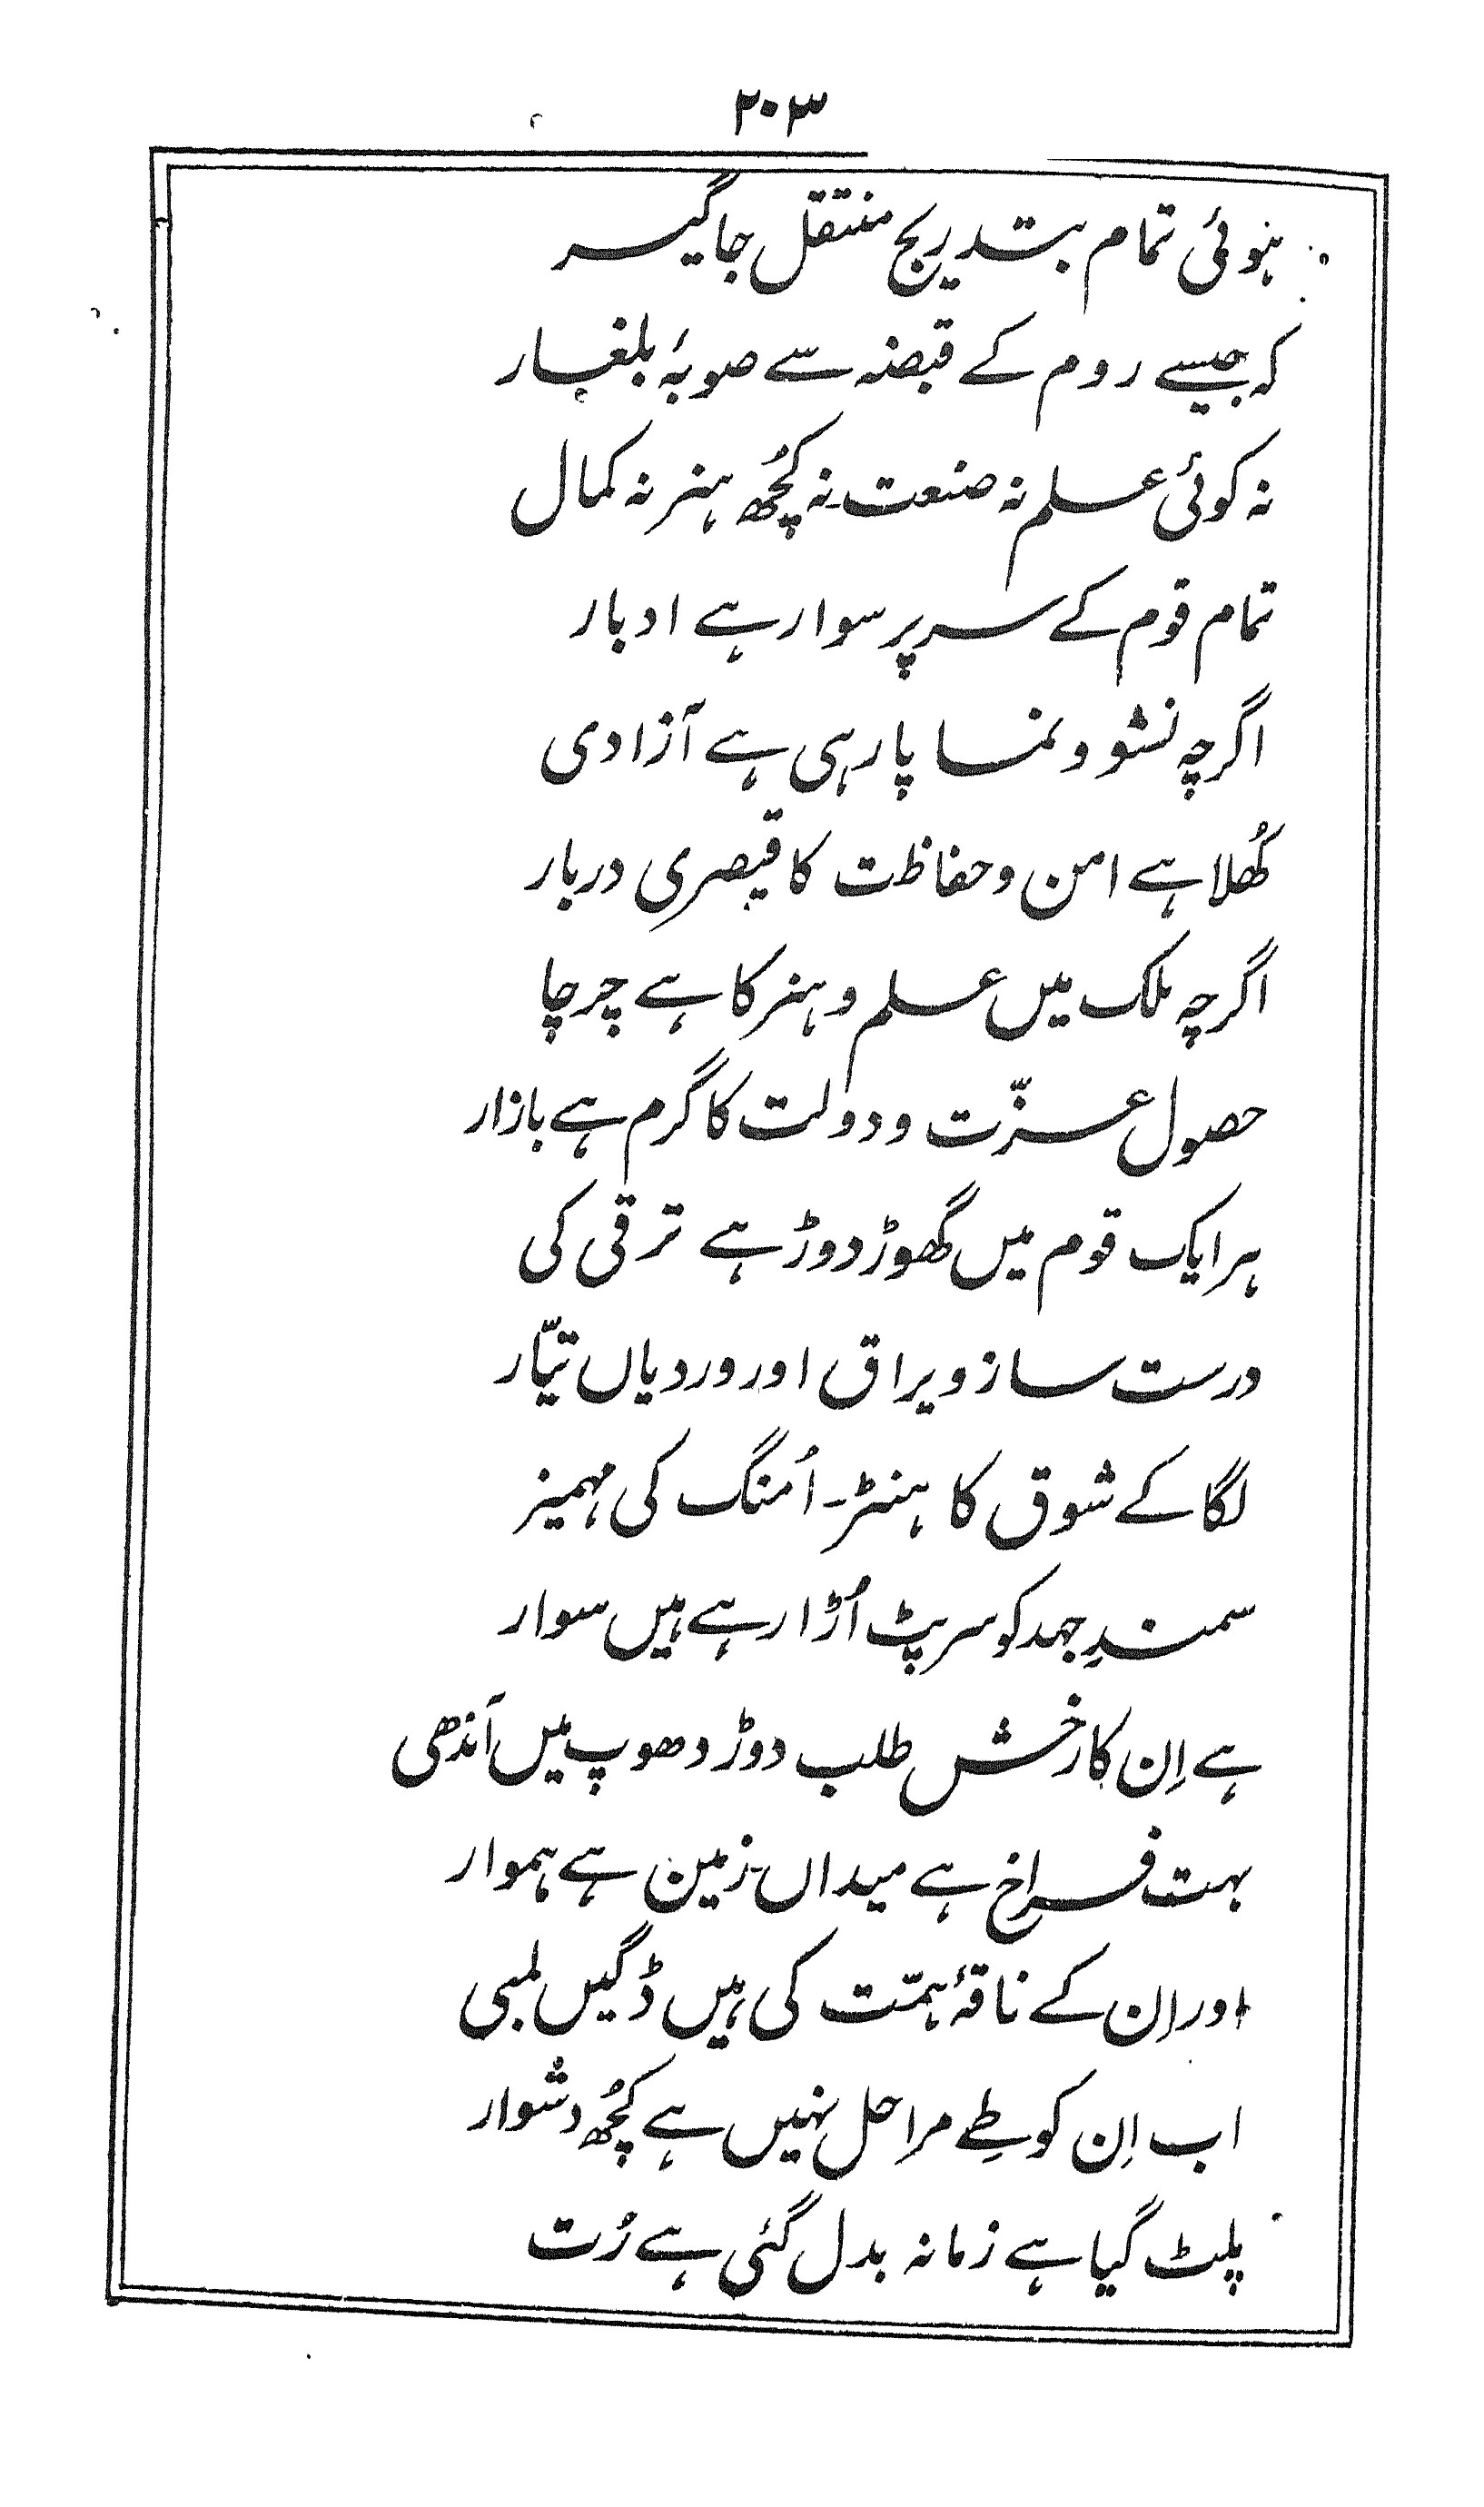 ۲۰۳
ہوئی تمام بتدریج منتقل جاگیر
کہ جیسے روم کے قبضہ سے صوبۂ بلغار
نہ کوئی علم نہ صنعت۔ نہ کچُھ ہنر نہ کمال
تمام قوم کے سر پر سوار ہے ادبار
اگرچہ نشو و نما پا رہی ہے آزادی
کُھلا ہے امن و حفاظت کا قیصری دربار
اگرچہ ملک میں علم و ہنر کا ہے چرچا
حصول عزّت و دولت کا گرم ہے بازار
ہر ایک قوم میں گھوڑ دوڑ ہے ترقی کی
درست ساز و یراق اور وردیاں تیّار
لگا کے شوق کا ہنٹر۔ اُمنگ کی مہمیز
سمندِ جہد کو سرپٹ اُڑا رہے ہیں سوار
ہے اِن کا رخش طلب دوڑ دھوپ میں آندھی
بہت فراخ ہے میداں۔ زمین ہے ہموار
اور اِن کے ناقۂ ہمّت کی ہیں ڈگیں لمبی
اب اِن کو طے مراحل نہیں ہے کچُھ دشوار
پلٹ گیا ہے زمانہ بدل گئی ہے رُت